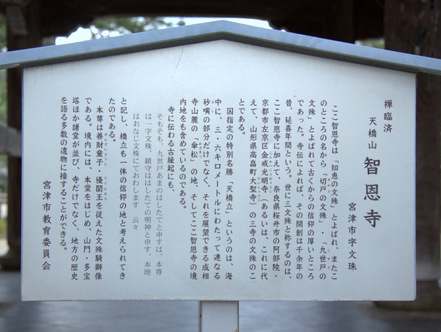 禅臨済
天橋山 智恩寺
宮津市字文珠
ここ智恩寺は「知恵の文殊」とよばれ、またこ
のところの名から「切戸の文殊」・「九世戸の
文殊」とよばれて古くからの信仰の厚いところ
であった。寺伝によれば、その開創は千余年の
昔、延喜年間という。世に三文殊と称するのは、
ここ智恩寺に加えて、奈良県桜井市の阿部院・
京都市左京区金戒光明寺（あるいは、これに代
えて、山形県高畠町大聖寺）の三寺の文殊のこ
とである。
国指定の特別名勝「天橋立」というのは、海
中に、三・六キロメートルにわたって連なる
砂嘴の部分だけでなく、それを展望できる成相
寺山麓の「傘松」の地、そしてここ智恩寺の境
内地をも含めているのである。
寺に伝わる古縁起にも、
そもそも、九世戸あまのはしたてと申すは、本尊
は一字文殊、鎮守ははしたての明神と申す、本地
はおなじ文殊にておわします 云々
と記し、橋立も一体の信仰の地と考えられてき
たのである。
本尊は善財童子、優闐王を従えた文殊騎獅像
である。境内には、本堂をはじめ、山門・多宝
塔ほか諸堂が並び、寺だけでなく、地方の歴史
を語る多数の遺物に接することができる。
宮津市教育委員会